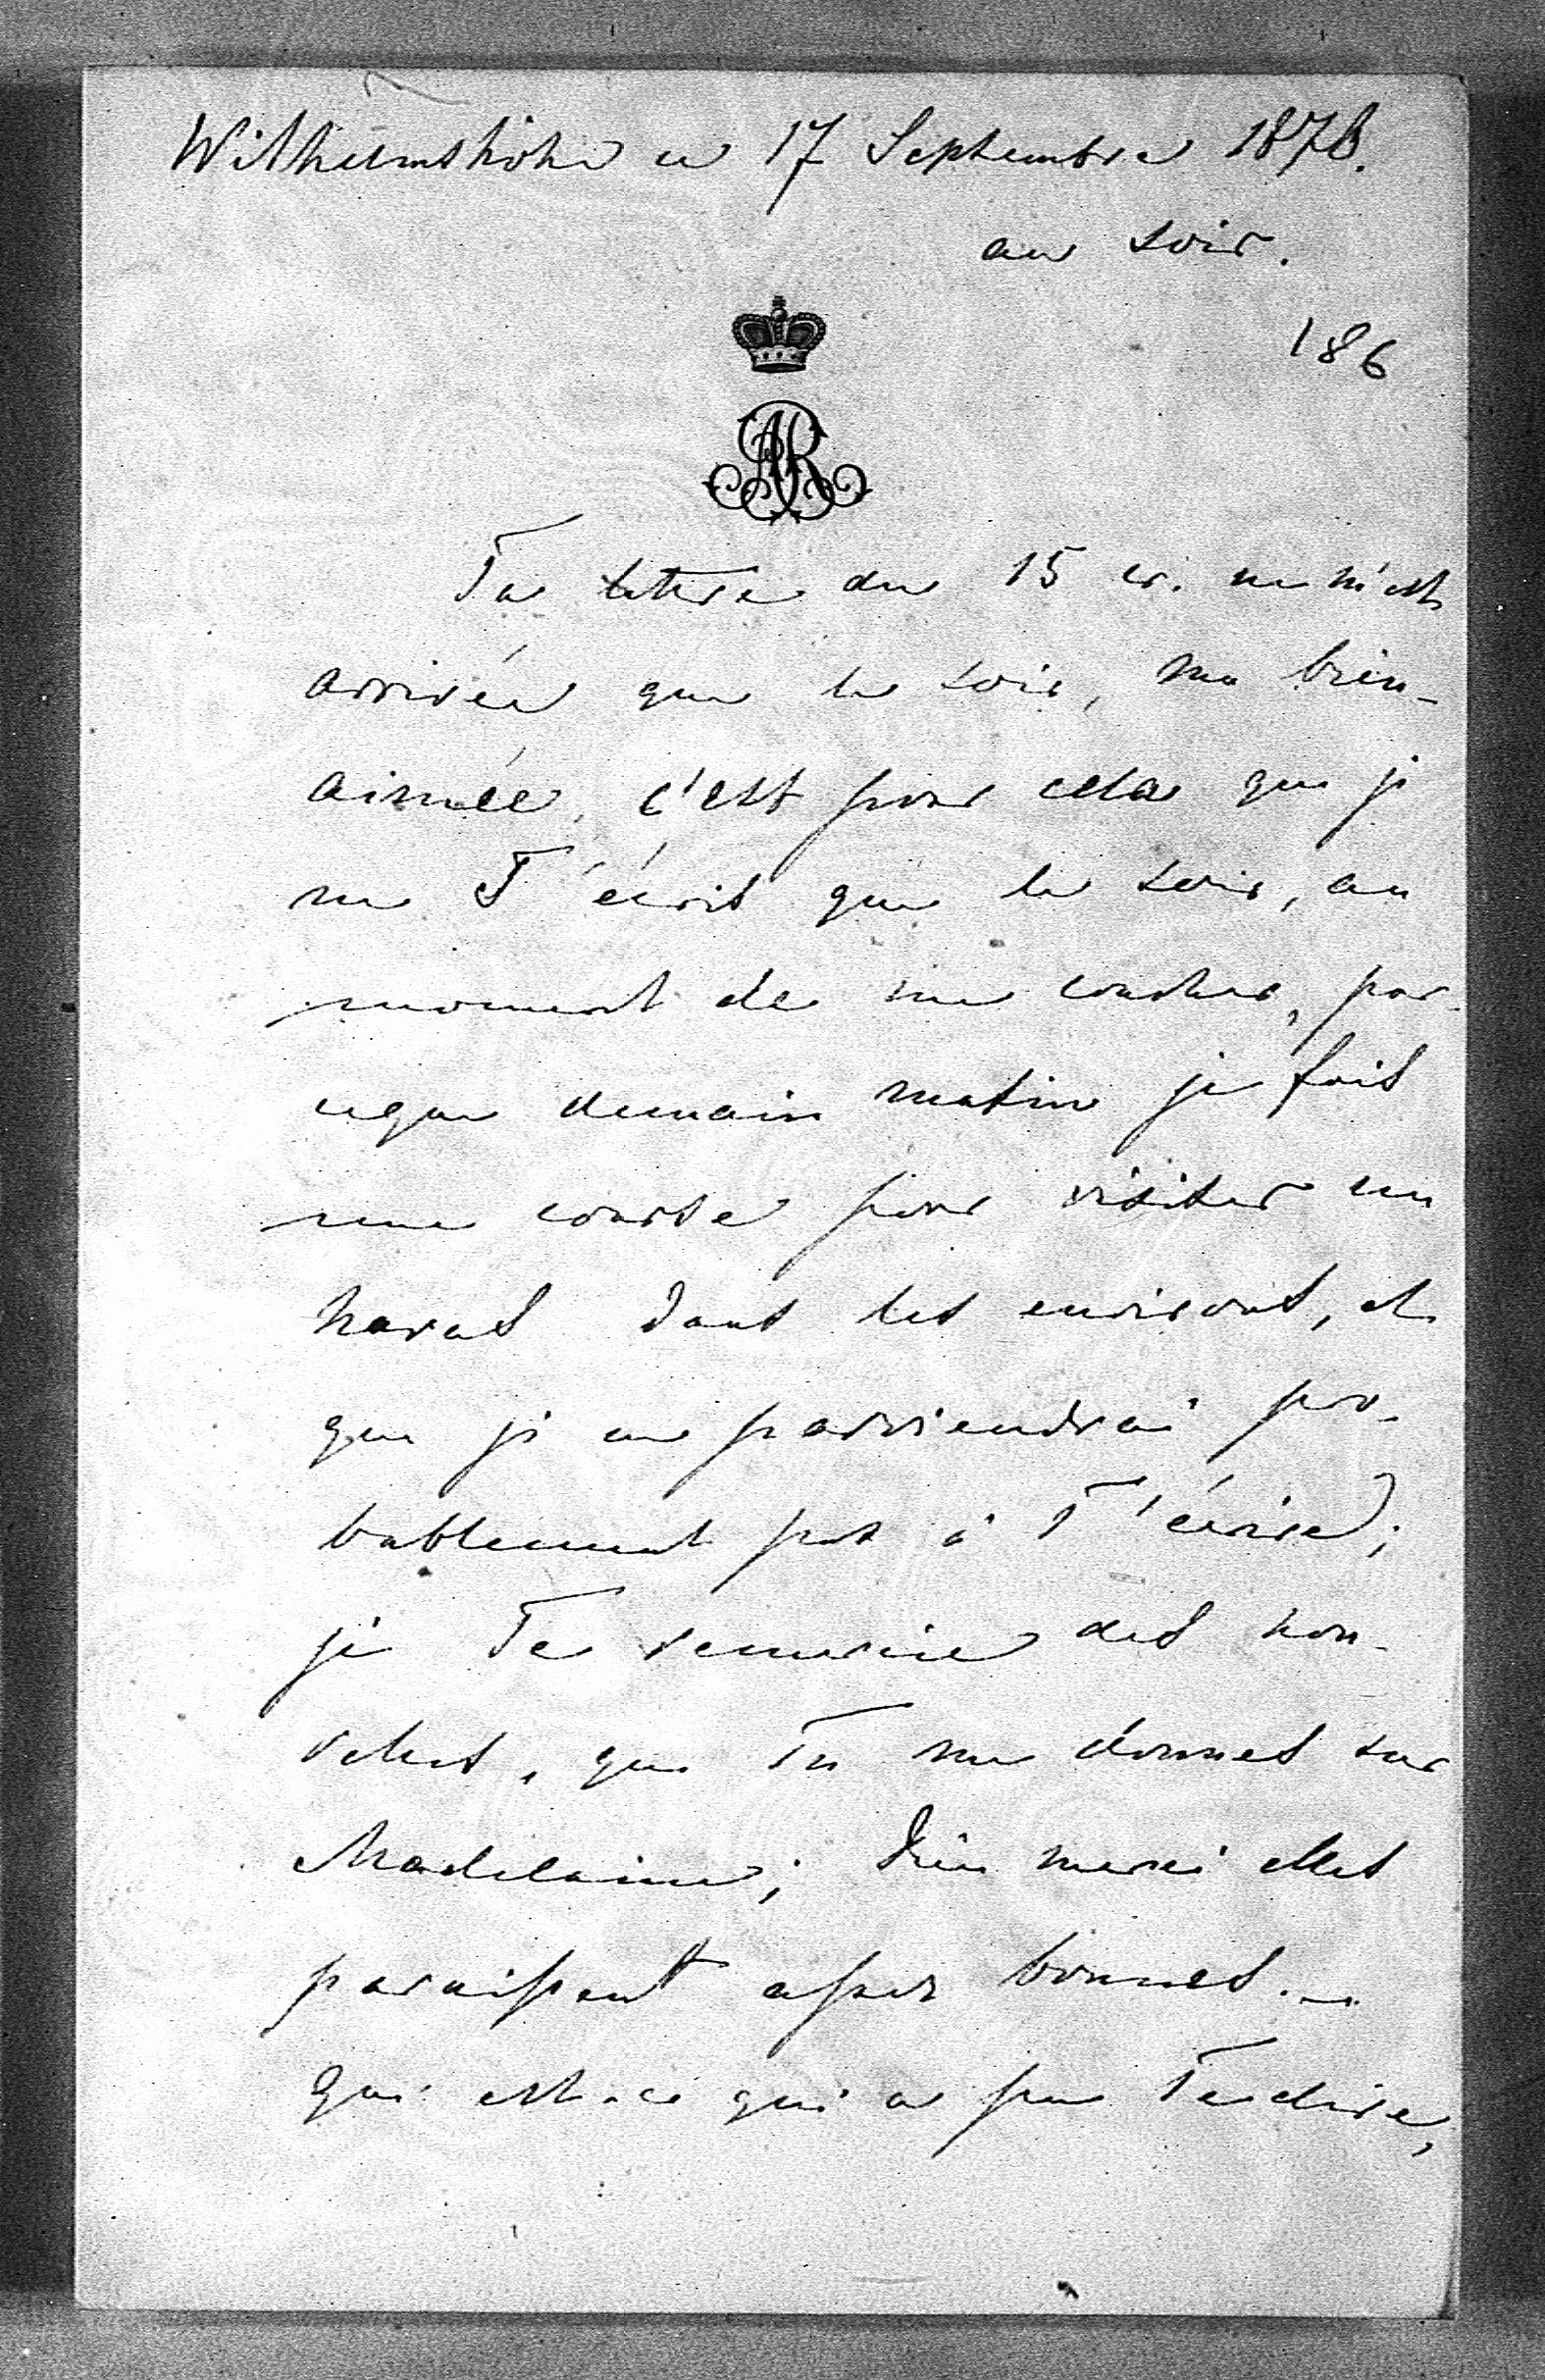 Wilhelmshöhe ce 17 Septembre 1878.
au soir.
186
AR
Ta lettre du 15 cr. ne m'est
arrivée que le soir, ma bien-
aimée, c'est pour cela que je
ne T'écris que le soir, au
moment de me coucher, par-
ceque demain matin je fais
une course pour visiter un
haras dans les environs, et
que je ne parviendrai pro-
bablement pas à T'écrire;
je Te remercie des nou-
velles, que Tu me donnes sur
Madelaine; Dieu merci elles
paraissent assez bonnes. —
Qui est-ce qui a pu Te dire,